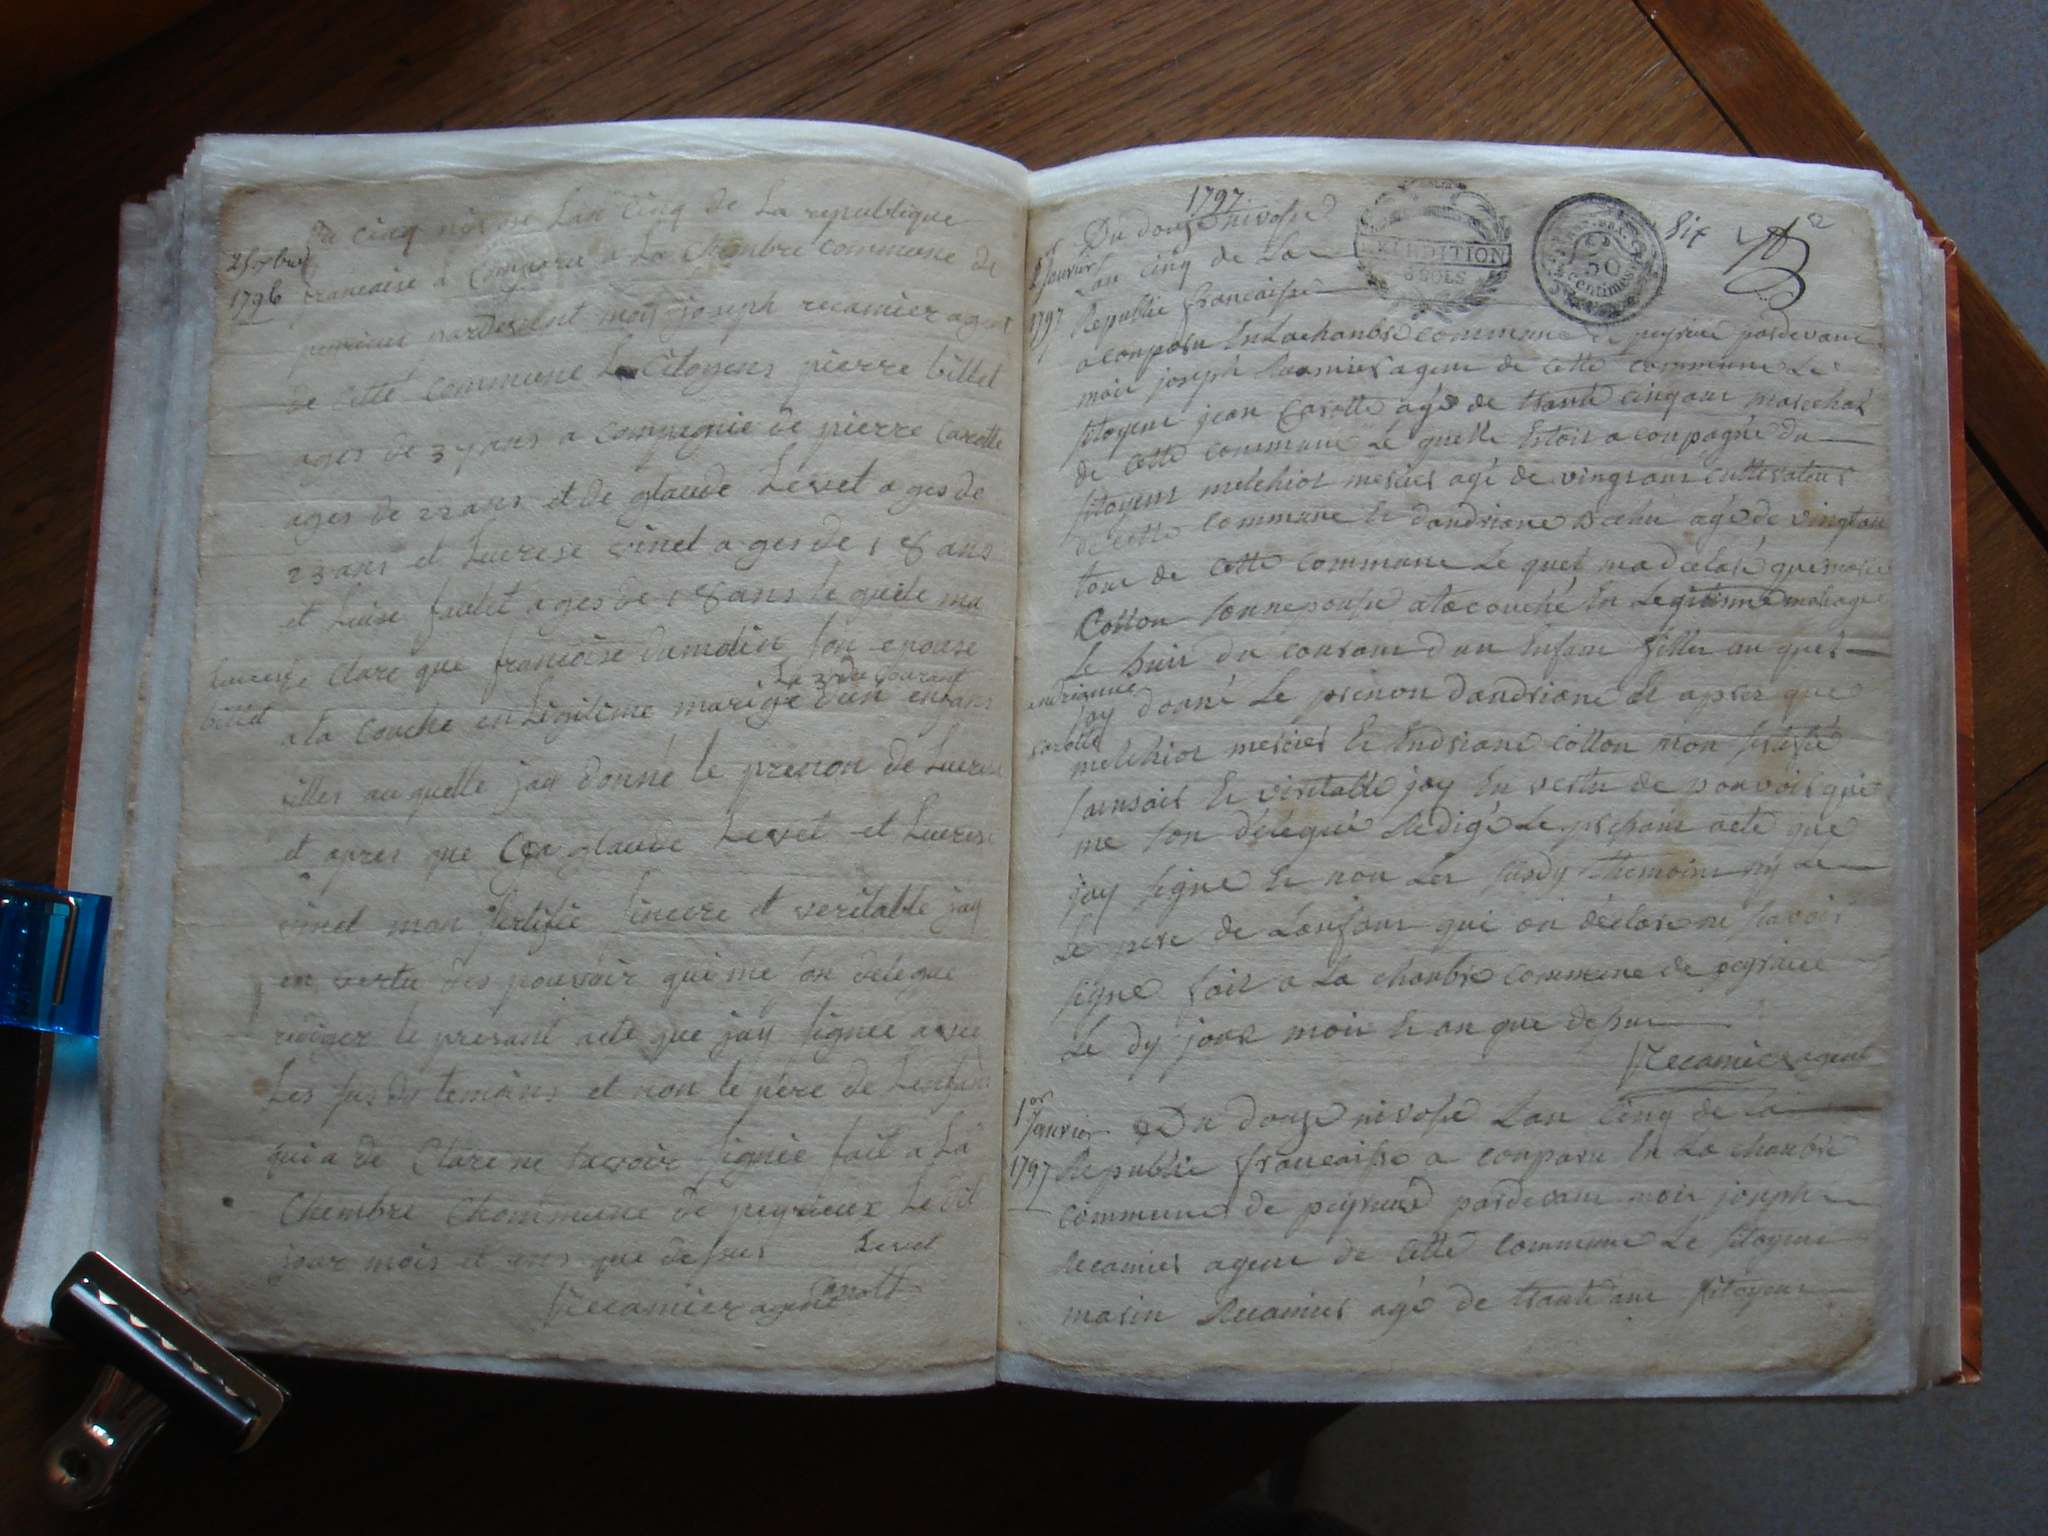 Du cinq nivose Lan Cinq de La republique
25 xbre
1796
francaise a Comparu a La Chembre commune de
peirieu pardevant moy joseph recamier agent
de cette commune Le Citoyens pierre billet
ages de 37 ans a compagnie de pierre Carotte
ages de 22 ans et de glaude Levet ages de
23 ans et Lucrese vinet ages de 18 ans
et Luise ages de 18 ans le quele ma
de Clare que francoise dumolin son epouse
Lucrese
billet
Le 3 du courant
ala couche en Legitime marige dun enfans
filles au quelle jay donné le prenon de Lucrese
et apres que glaude Levet et Lucrese
vinet mon sertifie sincere et veritable jay
en vertu des pouvoir qui me son delegue
rediger le presant acte que jay signee avec
Les susdit temoins et non le père de Lenfan
qui a de Clare ne savoir signée fait a La
Chembre Chommune de peyrieux Le dit
jour mois et ans que desus Levet
Carott
Recamier agent
1797
Du douze nivose
1er
Janvier
1797
Lan cinq de La
Republie francaise
EXPEDITION
6 SOLS
50
Centimes
Six
a conparu En La chanbre commune de peyrieu pardevant
moir joseph Recamier agent de cette commune Le
sitoyent jean Carotte agé de trante cinq ans marechal
de cette commune Le quelle Estoit a conpagée du
sitoyent melchior mercier agé de vingt ans cultivateur
de cette commune Et dandriane agé de vingt ans
tous de cette commune Le quel ma declaré que marie
Cotton sonnepouse ala couché En Legitisme mariage
Le huit du courant dun Enfant filles au quel
andrianne
Carotte
jay donné Le prenon dandriane Et apres que
melchior mercier Et Endriane cotton mon sertifié
sainsair Et viritable jay En vertu de pouvoir qui
me son délégué Redigé Le present acte que
jay signe Et non Les susdy themoint ny Le
Le pere de Lanfant qui on déclare ne savoir
signe fait a La chanbre commune de peyrieu
Le dy jour moir Et an que desus
Recamier agent
1er
Janvier
1797
Du douze nivose Lan Cinq de la
Republie francaise a conparu En La chanbre
commune de peyrieu pardevant moir joseph
Recamier agent de cette commune Le sitoyent
marin Recamier agé de trante ans sitoyent